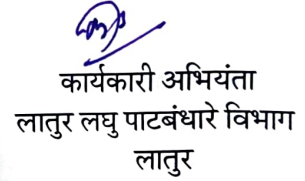 कार्यकारी अभियंता
लातुर लघु पाटबंधारे विभाग
लातुर